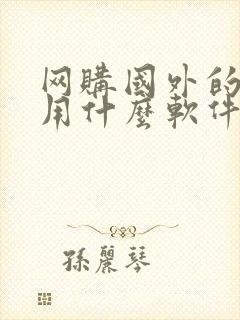 网購國外的
用什麼軟件
孫麗琴